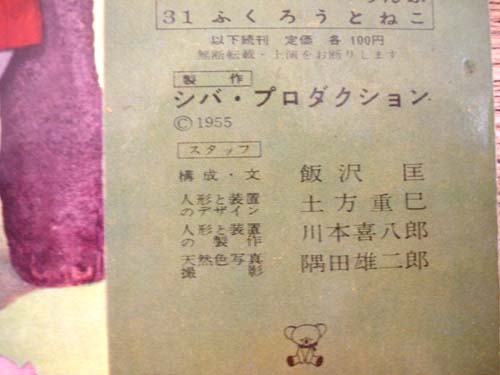 31 ふくろうとねこ
以下続刊 定価 各100円
無断転載・上演をお断りします
製作
シバ・プロダクション
© 1955
スタッフ
構成・文 飯沢 匡
人形と装置のデザイン 土方重巳
人形と装置の製作 川本喜八郎
天然色写真撮影 隅田雄二郎